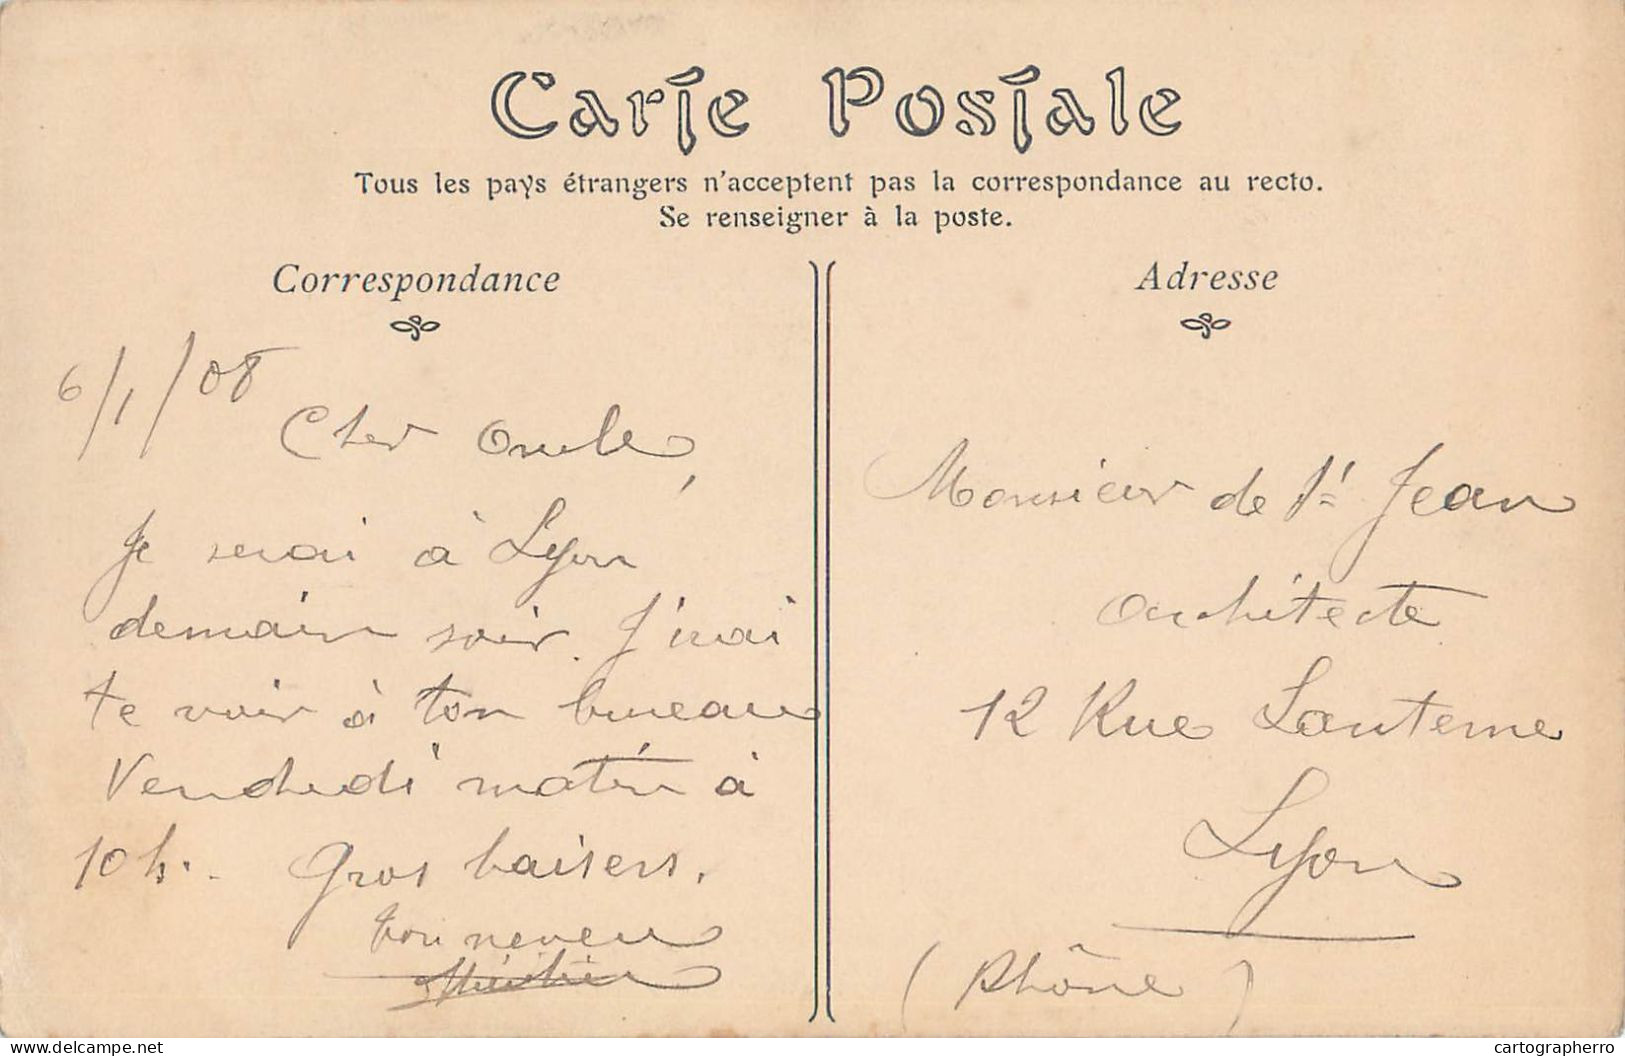 Carte Postale
Tous les pays étrangers n'acceptent pas la correspondance au recto.
Se renseigner à la poste.
Correspondance
6/1/08
Cher Oncle,
Je serai à Lyon
demain soir. J'irai
te voir à ton bureau
Vendredi matin à
10 h. Gros baisers.
ton neveu
Adresse
Monsieur de St Jean
Architecte
12 Rue Lanterne
Lyon
(Rhône)
delcampe.net
cartographerro